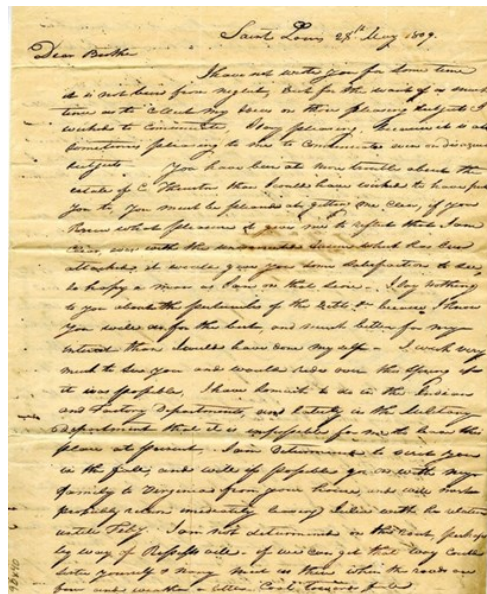 Saint Louis 28th May 1809.
Dear Brother
I have not wrote you for some time
it is not been from neglect, but for the want of as much
time as to collect my ideas on those pleasing subjects I
wished to Communicate, I say pleasing, because it is at
Sometimes pleasing to me to Communicate even on disagree
Subjects You have been at more trouble about the
estate of C. Thruston than I would have wished to have put
you to, you must be pleased at getting me clear, if you
Knew what pleasure it give me to reflect that I am
Clear, even with the which has been
attached, it would give you some Satisfaction to see
So happy a man as I am on that Score. I Say nothing
to you about the particulars of the because I know
you will act for the best, and much better for my
interest than I would have done my self - I wish very
much to See you and would rode over this Spring if
it was possible, I have So much to do in the Indian
and Factory Departments, and latterly in the Military
Department that it is impossible for me to leave this
place at present. I am Determined to visit you
in the fall, and will if possible go on with my
family to Virginia from your house, and will most
probably return imediately leaving Julia with her relations
untill Feby. I am not determined on the rout, perhaps
by way of if we can get that way could
Sister yourself & Nancy meet us there when the roads are
fine and weather Cool towards fall